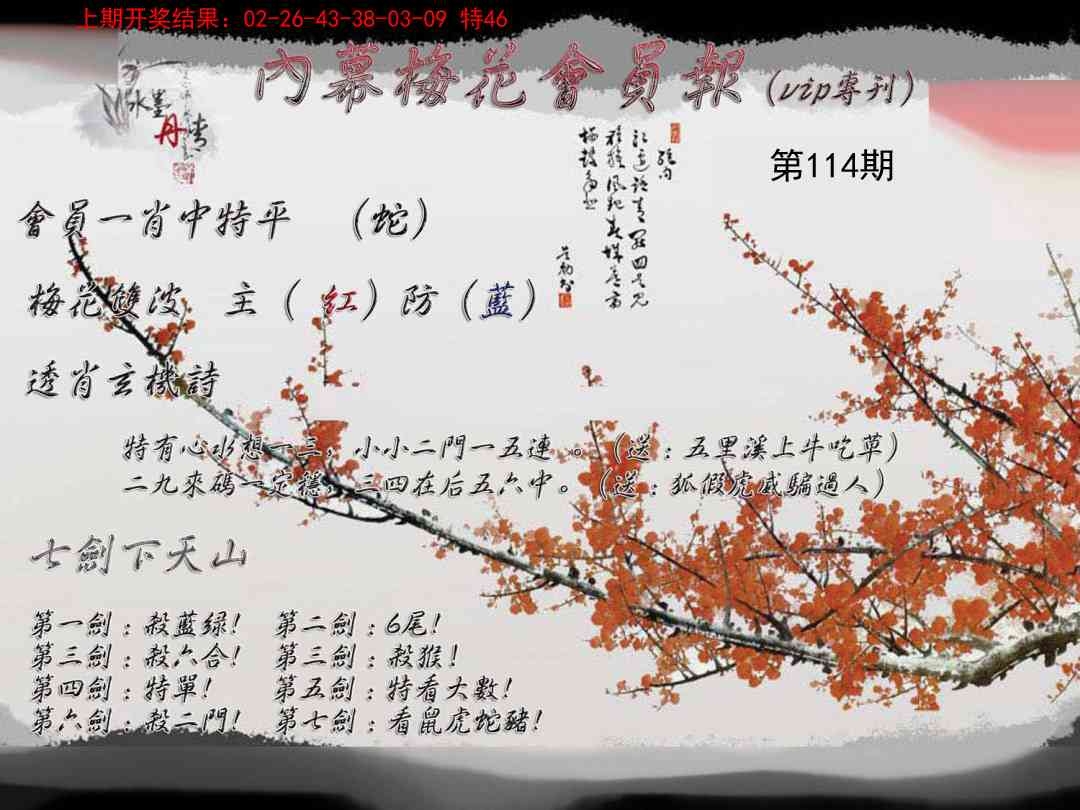 上期开奖结果：02-26-43-38-03-09 特46
內幕梅花會員報（vip專刊）
水墨
丹青
第114期
會員一肖中特平 （蛇）
梅花雙波 主（紅）防（藍）
透肖玄機詩
特有心水想一三，小小二門一五連。（送：五里溪上牛吃草）
二九來碼一定穩，三四在后五六中。（送：狐假虎威騙過人）
七劍下天山
第一劍：殺藍绿！ 第二劍：6尾！
第三劍：殺六合！ 第三劍：殺猴！
第四劍：特單！ 第五劍：特看大數！
第六劍：殺二門！ 第七劍：看鼠虎蛇豬！